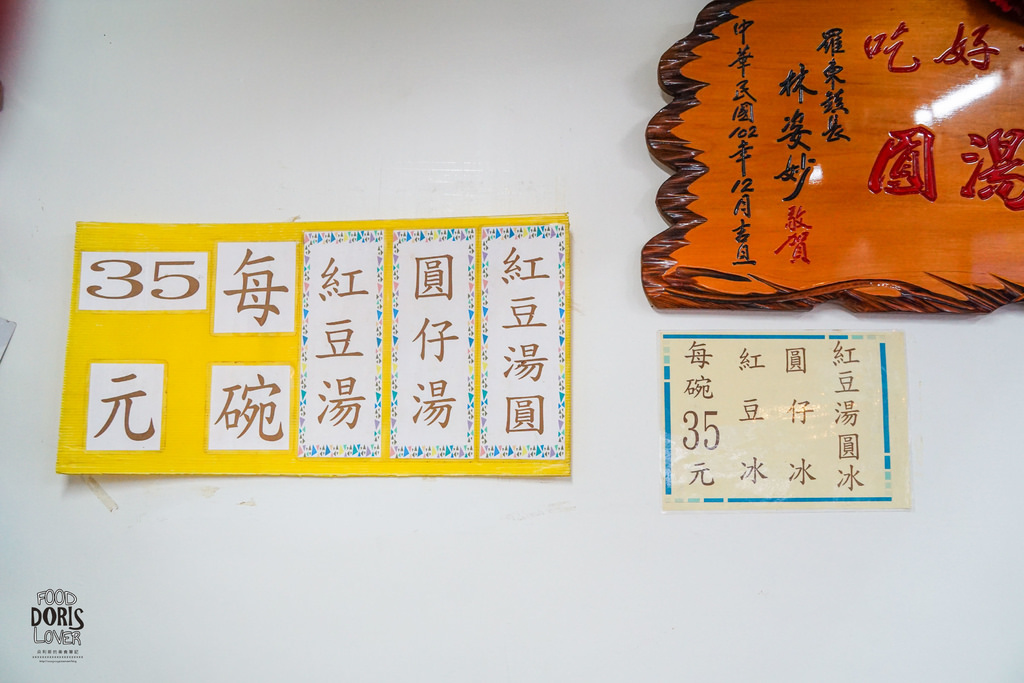 紅豆湯圓
圓仔湯
紅豆湯
每碗
35元
好吃
湯圓
羅東鎮長
林姿妙
敬賀
中華民國102年12月吉旦
紅豆湯圓冰
圓仔冰
紅豆冰
每碗35元
FOOD
DORIS
LOVER